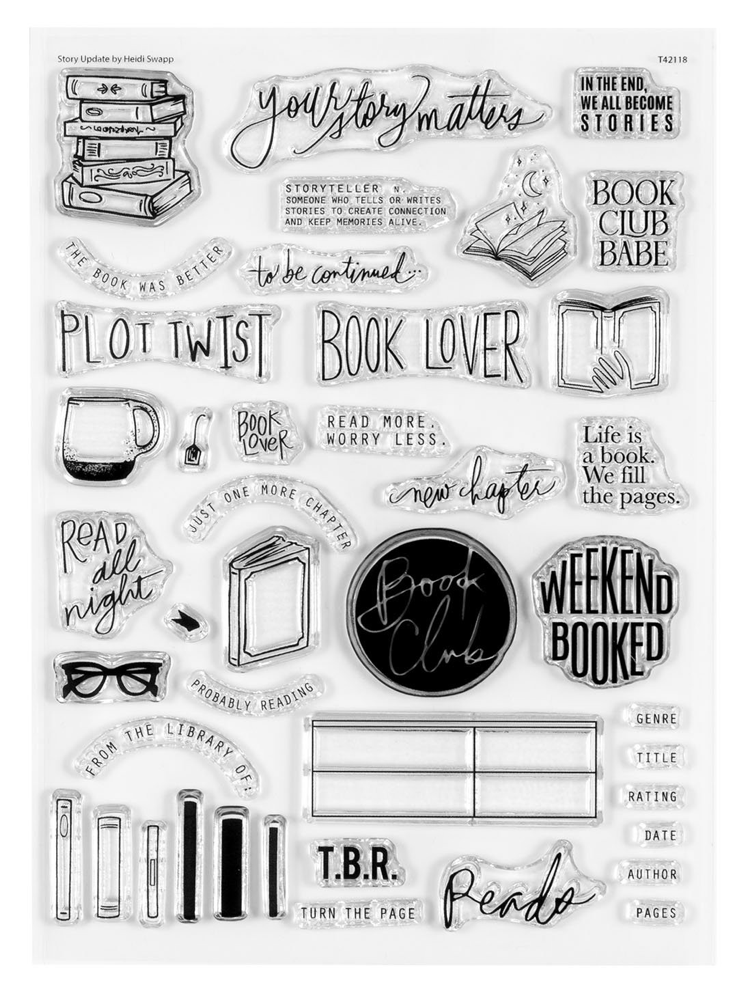 Story Update by Heidi Swapp
T42118
your story matters
IN THE END,
WE ALL BECOME
STORIES
STORYTELLER N.
SOMEONE WHO TELLS OR WRITES
STORIES TO CREATE CONNECTION
AND KEEP MEMORIES ALIVE.
BOOK
CLUB
BABE
THE BOOK WAS BETTER
to be continued...
PLOT TWIST
BOOK LOVER
BOOK
LOVER
READ MORE.
WORRY LESS.
new chapter
Life is
a book.
We fill
the pages.
JUST ONE MORE CHAPTER
READ
all
night
Book
Club
WEEKEND
BOOKED
PROBABLY READING
FROM THE LIBRARY OF:
GENRE
TITLE
RATING
DATE
AUTHOR
PAGES
T.B.R.
TURN THE PAGE
Reads